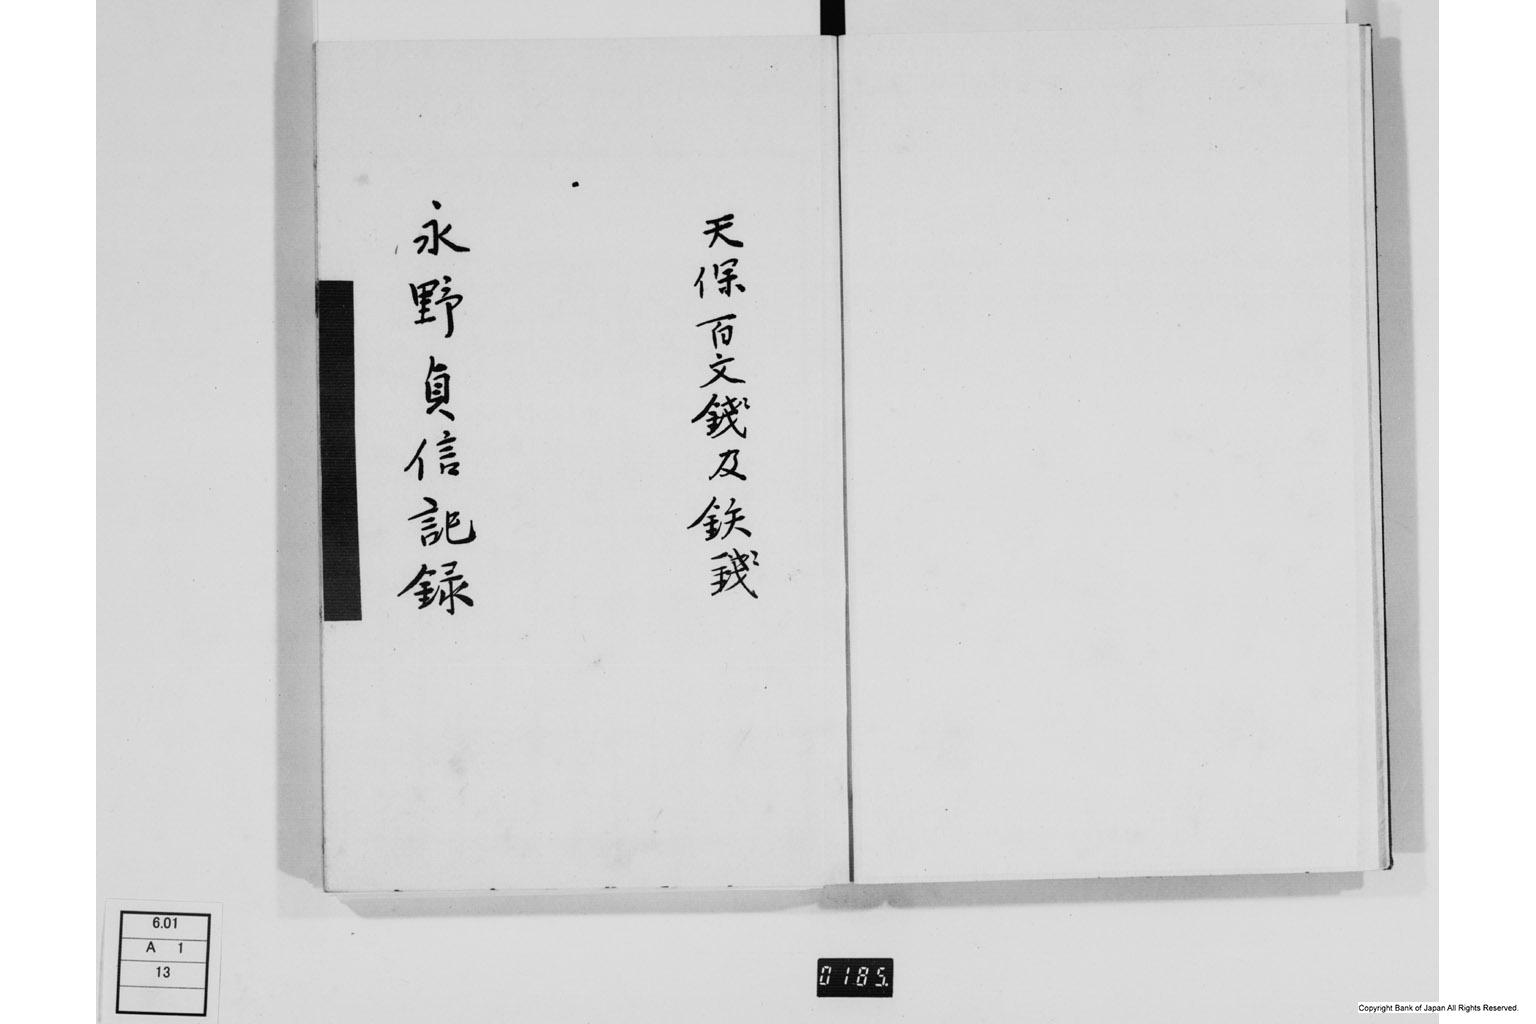 天保百文錢及鉄錢
永野貞信記録
6.01
A 1
13
0185.
Copyright Bank of Japan All Rights Reserved.